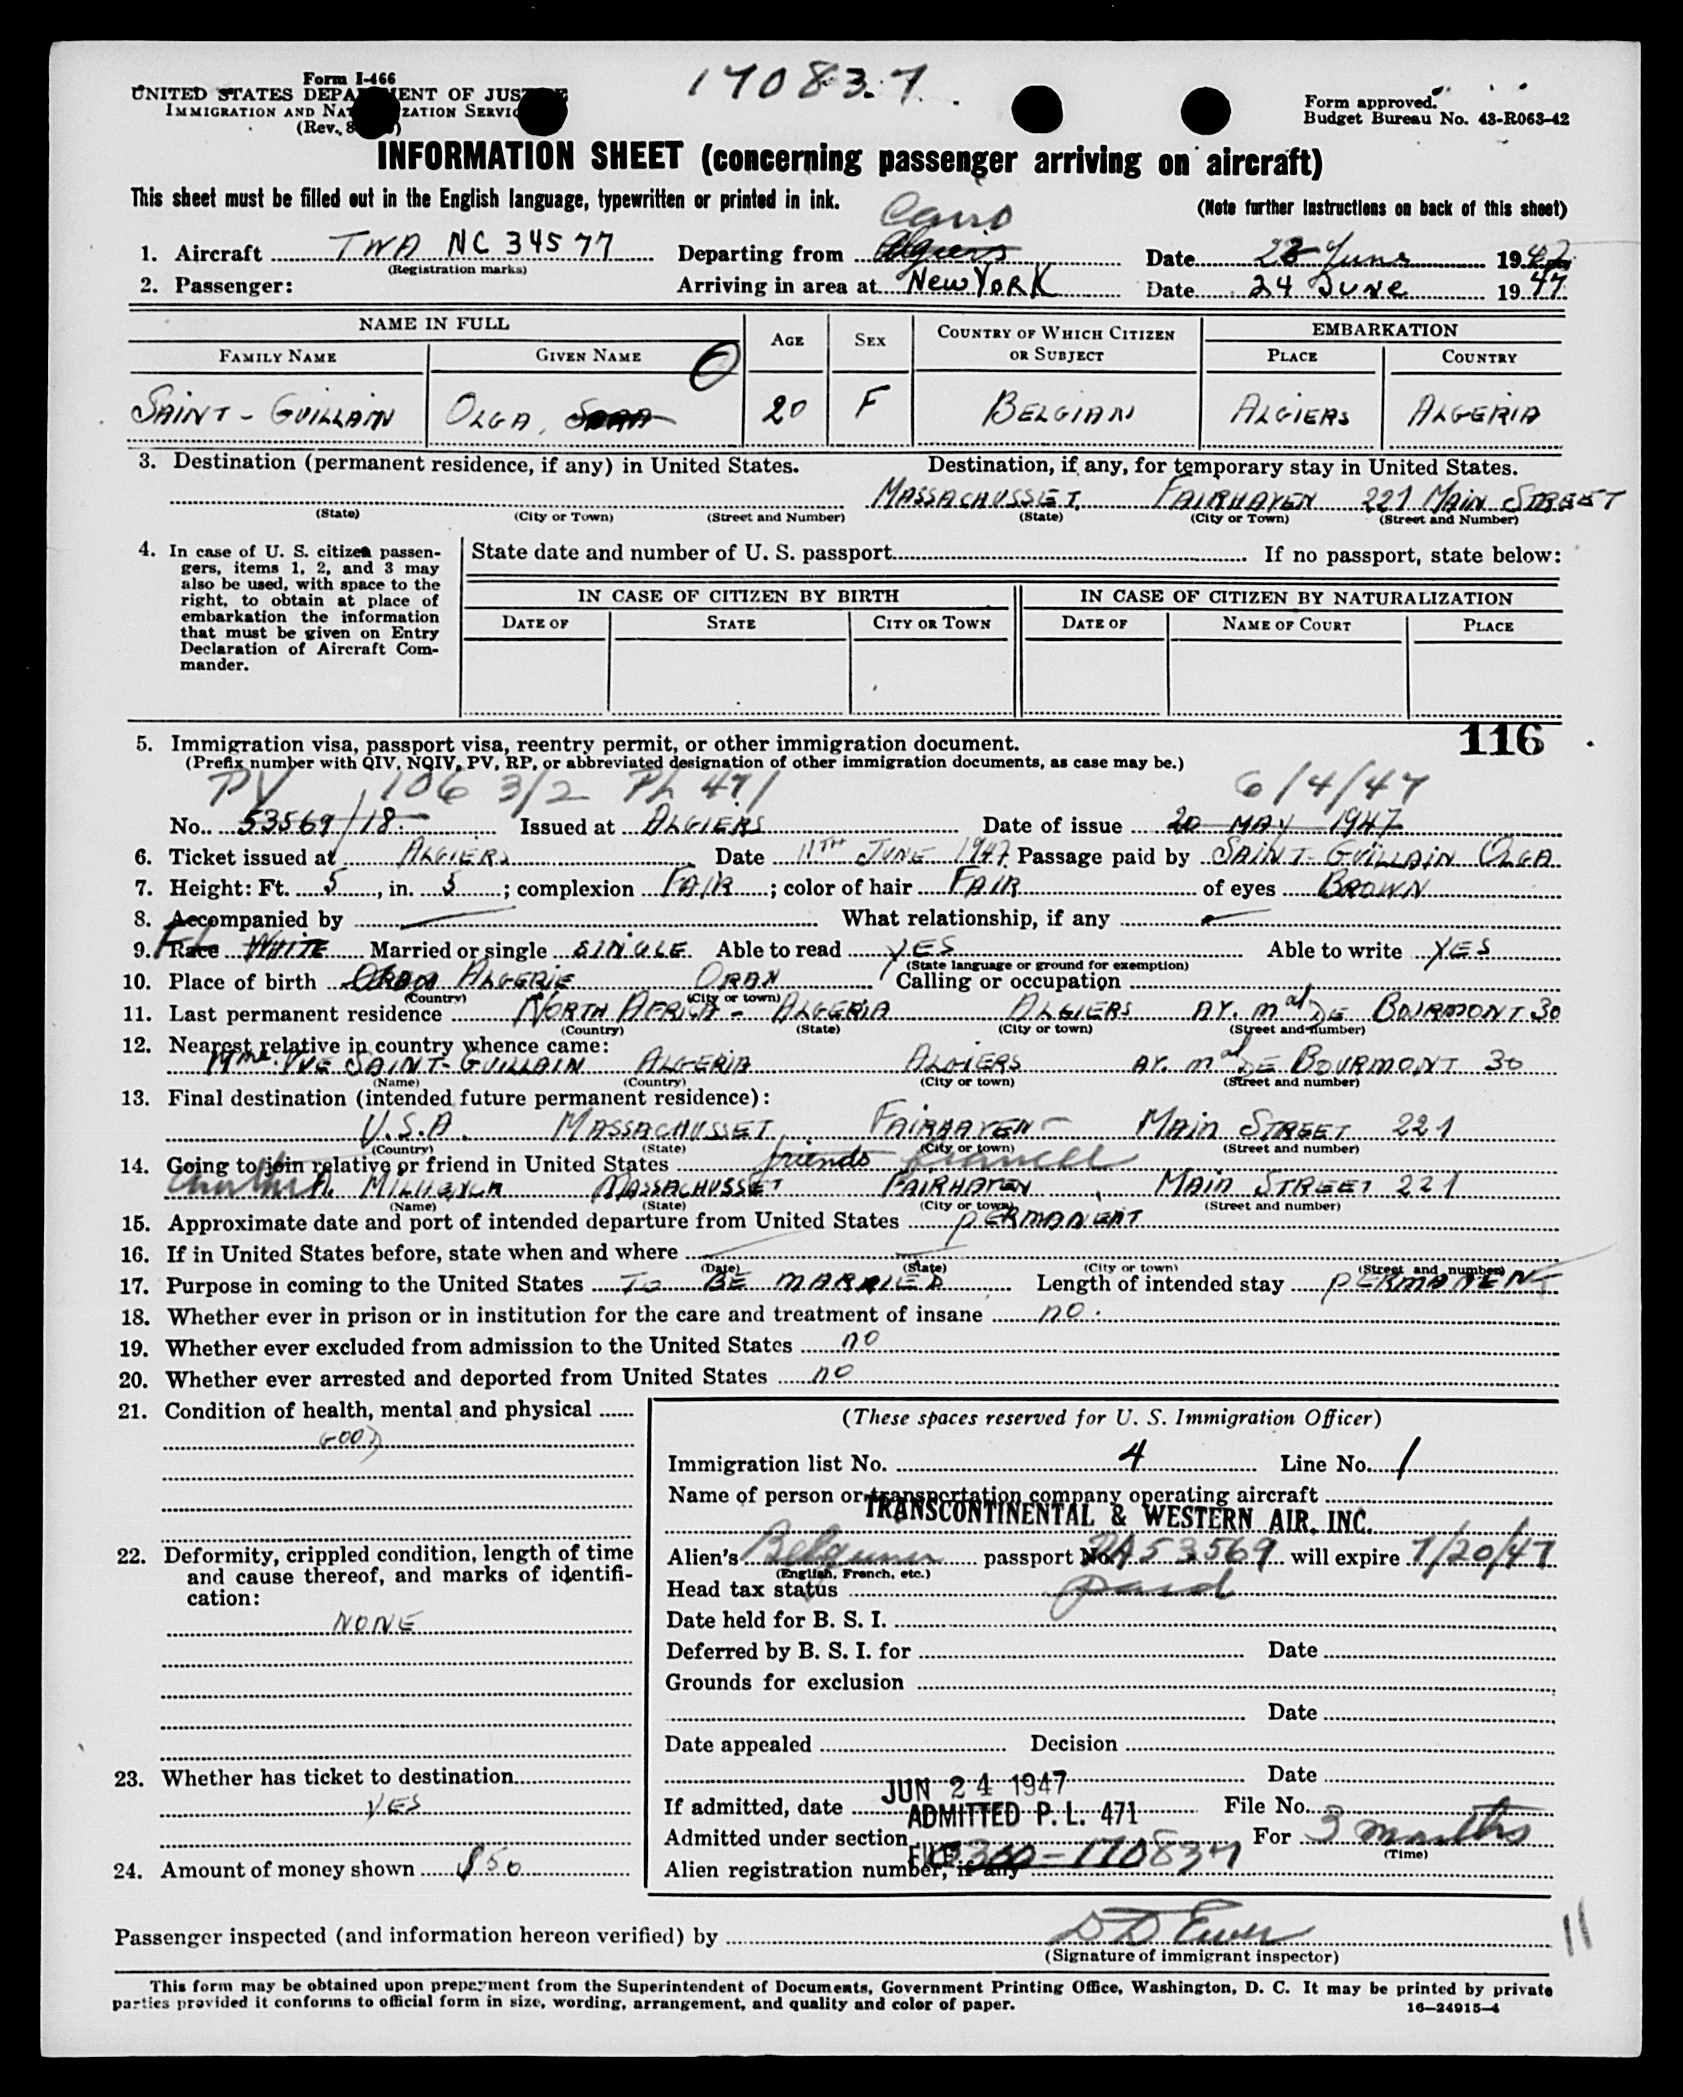 Form I-466
UNITED STATES DEPARTMENT OF JUSTICE
IMMIGRATION AND NATURALIZATION SERVICE
(Rev. 8
170837
Form approved.
Budget Bureau No. 43-R063-42
INFORMATION SHEET (concerning passenger arriving on aircraft)
This sheet must be filled out in the English language, typewritten or printed in ink.
(Note further instructions on back of this sheet)
Cairo
1. Aircraft TWA NC 34577 Departing from Algiers Date 23 June 1947
(Registration marks)
2. Passenger: Arriving in area at New York Date 24 June 1947
NAME IN FULL AGE SEX COUNTRY OF WHICH CITIZEN OR SUBJECT EMBARKATION
FAMILY NAME GIVEN NAME PLACE COUNTRY
SAINT-GUILLAIN OLGA, 20 F BELGIAN ALGIERS ALGERIA
3. Destination (permanent residence, if any) in United States. Destination, if any, for temporary stay in United States.
MASSACHUSSET. FAIRHAVEN 221 MAIN STREET
(State) (City or Town) (Street and Number) (State) (City or Town) (Street and Number)
4. In case of U. S. citizen passengers, items 1, 2, and 3 may also be used, with space to the right, to obtain at place of embarkation the information that must be given on Entry Declaration of Aircraft Commander.
State date and number of U. S. passport If no passport, state below:
IN CASE OF CITIZEN BY BIRTH IN CASE OF CITIZEN BY NATURALIZATION
DATE OF STATE CITY OR TOWN DATE OF NAME OF COURT PLACE
116
5. Immigration visa, passport visa, reentry permit, or other immigration document.
(Prefix number with QIV, NQIV, PV, RP, or abbreviated designation of other immigration documents, as case may be.)
PV 106 3/2 PL 471 6/4/47
No. 53569/18 Issued at ALGIERS Date of issue 20 MAY 1947
6. Ticket issued at ALGIERS Date 11TH JUNE 1947 Passage paid by SAINT-GUILLAIN OLGA
7. Height: Ft. 5, in. 5; complexion FAIR; color of hair FAIR of eyes BROWN
8. Accompanied by What relationship, if any
9. Race WHITE Married or single SINGLE Able to read YES Able to write YES
(State language or ground for exemption)
10. Place of birth ALGERIE ORAN Calling or occupation
(Country) (City or town)
11. Last permanent residence NORTH AFRICA - ALGERIA ALGIERS AV. Mal DE BOURMONT 30
(Country) (State) (City or town) (Street and number)
12. Nearest relative in country whence came:
Mme. VVE SAINT-GUILLAIN ALGERIA ALGIERS AV. Mal DE BOURMONT 30
(Name) (Country) (City or town) (Street and number)
13. Final destination (intended future permanent residence):
U.S.A. MASSACHUSSET. FAIRHAVEN MAIN STREET 221
(Country) (State) (City or town) (Street and number)
14. Going to join relative or friend in United States friends
MASSACHUSSET FAIRHAVEN, MAIN STREET 221
(Name) (State) (City or town) (Street and number)
15. Approximate date and port of intended departure from United States PERMANENT
16. If in United States before, state when and where
(Date) (State) (City or town) (Street and number)
17. Purpose in coming to the United States TO BE MARRIED Length of intended stay PERMANENT
18. Whether ever in prison or in institution for the care and treatment of insane NO.
19. Whether ever excluded from admission to the United States NO
20. Whether ever arrested and deported from United States NO
21. Condition of health, mental and physical
GOOD
22. Deformity, crippled condition, length of time and cause thereof, and marks of identification:
NONE
23. Whether has ticket to destination
YES
24. Amount of money shown $50
(These spaces reserved for U. S. Immigration Officer)
Immigration list No. 4 Line No. 1
Name of person or transportation company operating aircraft
TRANSCONTINENTAL & WESTERN AIR, INC.
Alien's passport No. 53569 will expire 7/20/47
(English, French, etc.)
Head tax status paid
Date held for B. S. I.
Deferred by B. S. I. for Date
Grounds for exclusion
Date
Date appealed Decision
Date
If admitted, date JUN 24 1947 File No.
ADMITTED P. L. 471
Admitted under section For 3 months
(Time)
FILE 0300-170837
Alien registration number, if any
Passenger inspected (and information hereon verified) by
(Signature of immigrant inspector)
11
This form may be obtained upon prepayment from the Superintendent of Documents, Government Printing Office, Washington, D. C. It may be printed by private
parties provided it conforms to official form in size, wording, arrangement, and quality and color of paper.
16—24915-4